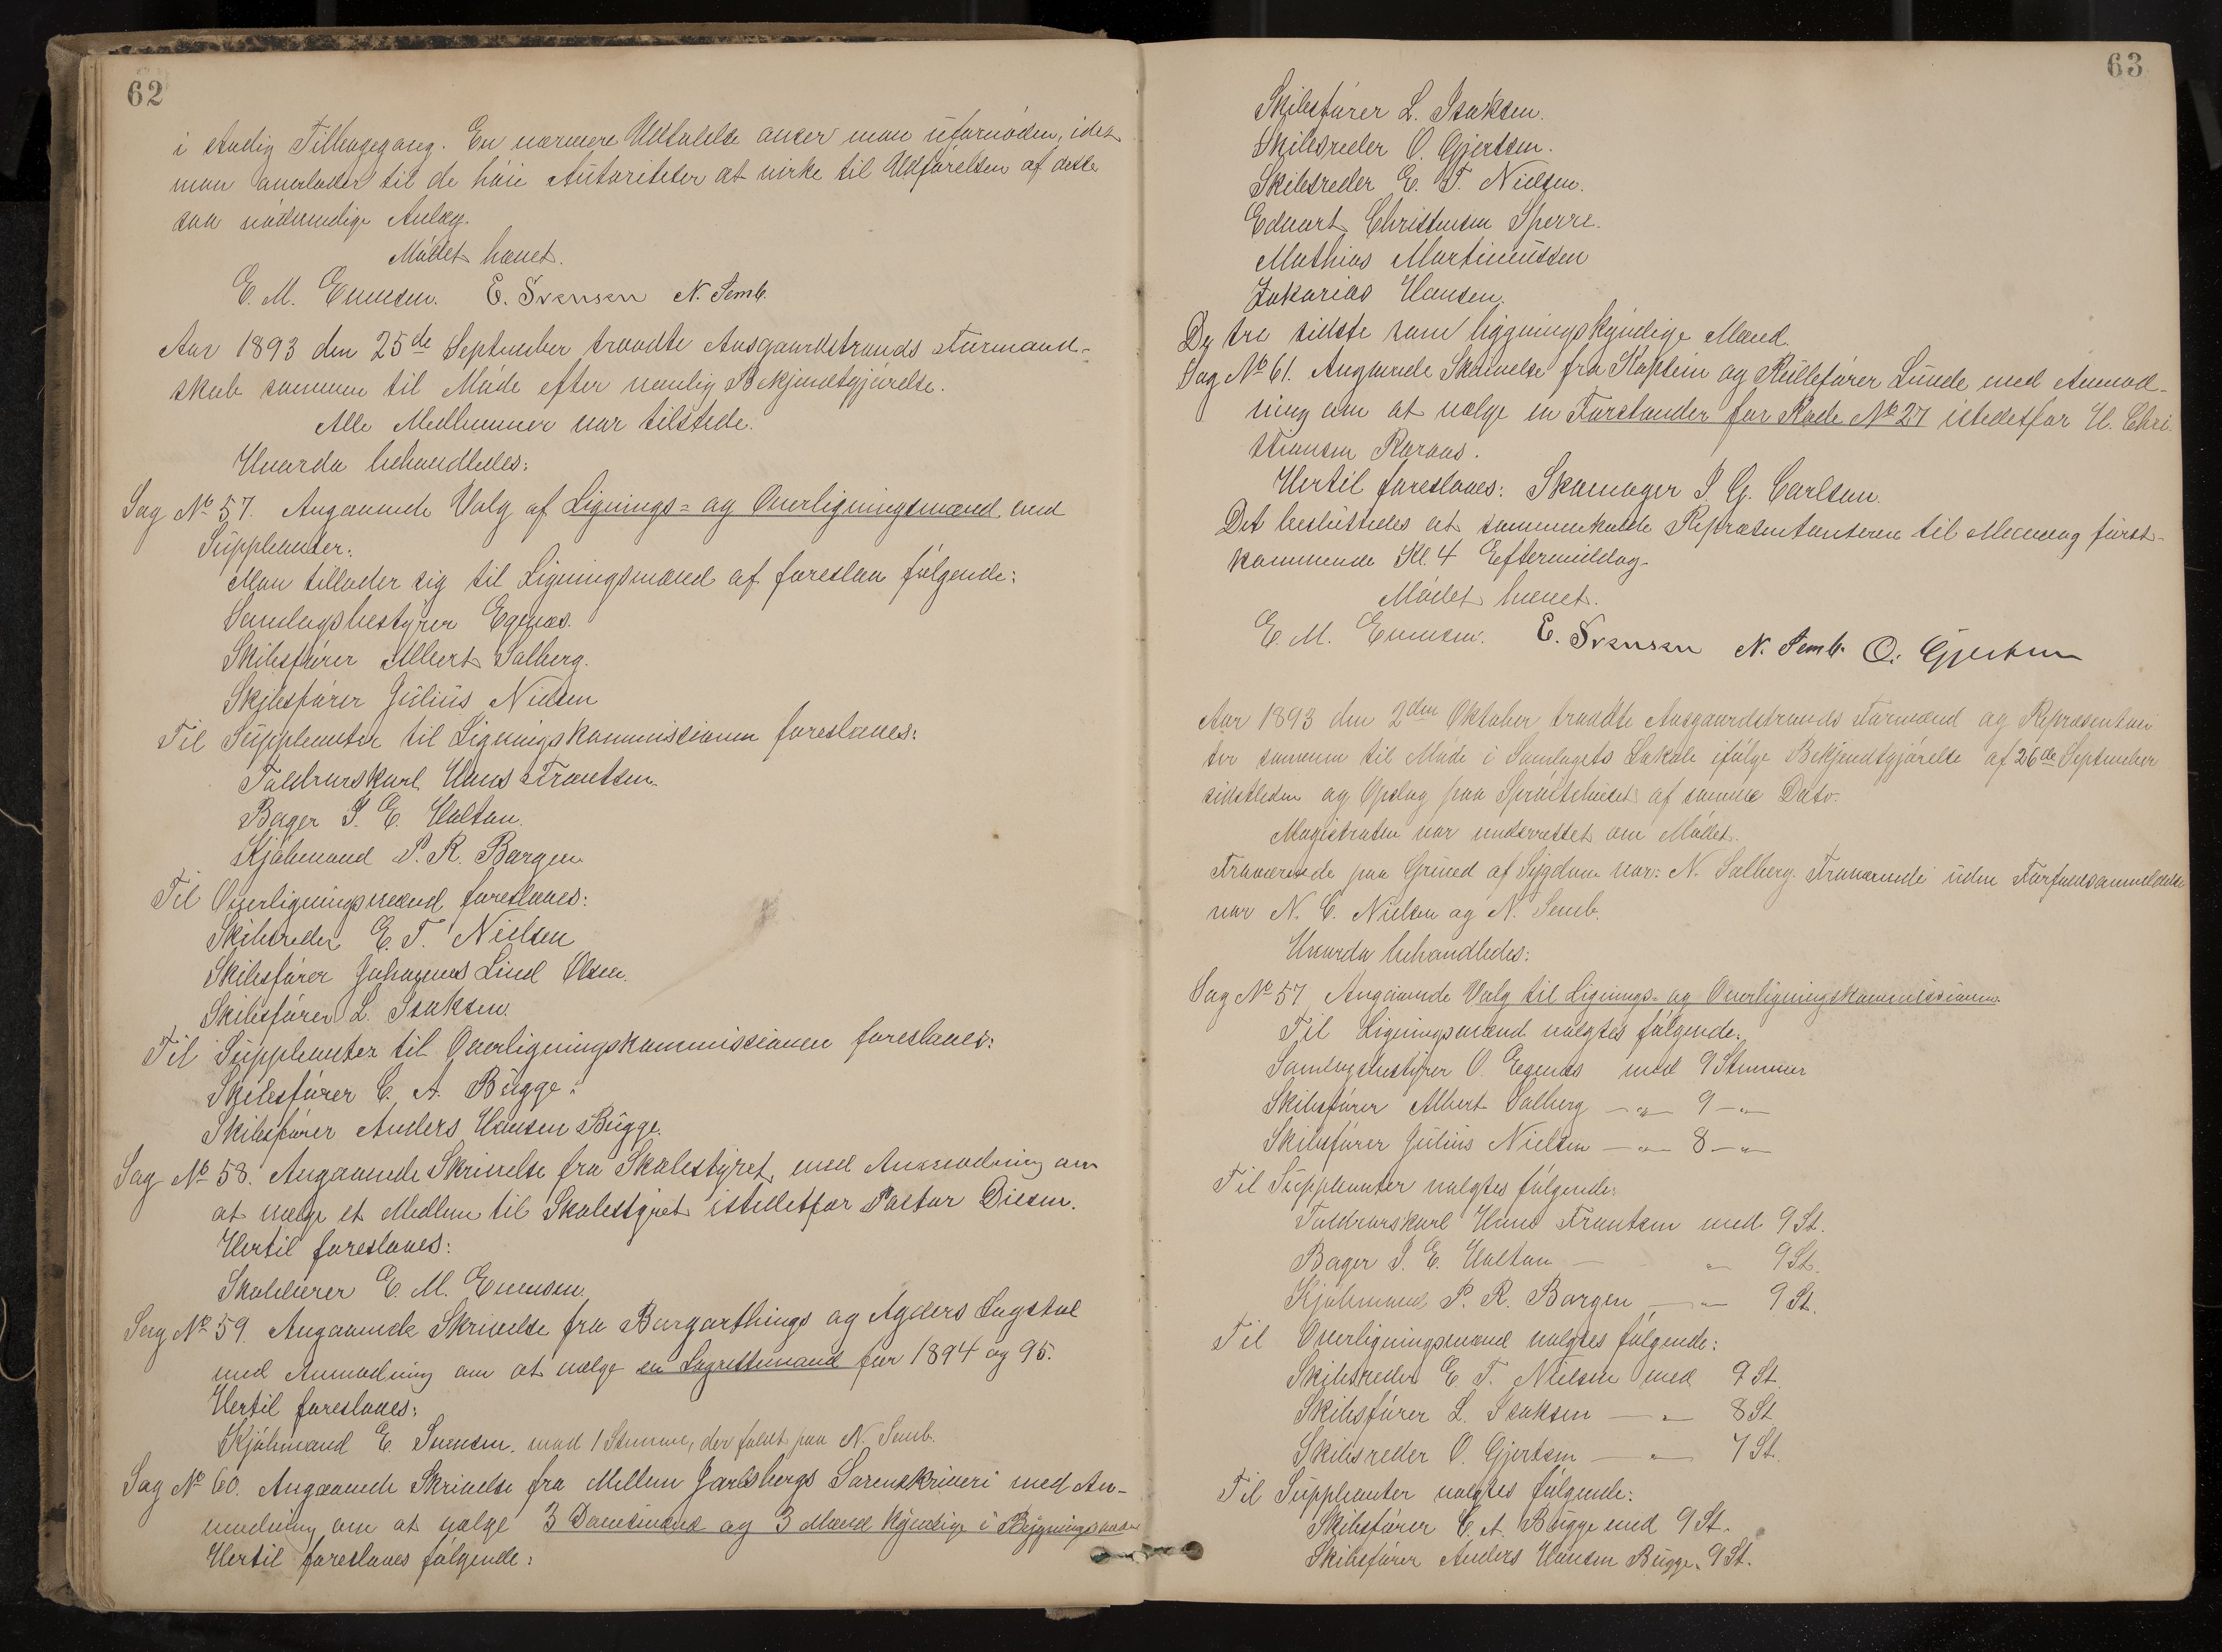 62
i stadig Tilbagegang. En nærmere Udtalelse anser man ufornøden, idet
man anerlader til de høie Autoriteter at virke til Udførelsen af dette
saa nødvendige Anlæg.
Mødet hævet.
E. M. Evensen. E. Svensen N. Semb.
Aar 1893 den 25de September traadte Aasgaardstrands Formand-
skab sammen til Møde efter nemlig Bekjendtgjørelse.
Alle Medlemmer var tilstede.
Hvorda behandledes:
Sag No 57. Angaaende Valg af Lignings- og Overligningsmænd med
Suppleanter.
Man tillader sig til Ligningsmænd at foreslaa følgende:
Samlagsbestyrer Egenæs.
Skibsfører Albert Solberg.
Skibsfører Julius Nielsen
Til Suppleanter til Ligningskommissionen foreslaaes:
Toldrorskarl Hans Frantsen.
Bager I. E. Holtan.
Kjøbmand P. R. Borgen
Til Overligningsmænd foreslaaes:
Skibsreder E. T. Nielsen
Skibsfører Johannes Lind Olsen.
Skibsfører L. Isaksen.
Til Suppleanter til Overligningskommissionen foreslaaes:
Skibsfører C. A. Bugge.
Skibsfører Anders Hansen Bugge.
Sag No 58. Angaaende Skrivelse fra Skolestyret med Anmodning om
at vælge et Medlem til Skolestyret istedetfor Pastor Diesen.
Hertil foreslaaes:
Skolelærer E. M. Evensen.
Sag No 59. Angaaende Skrivelse fra Borgarthings og Agders Lagstol
med Anmodning om at vælge en Lagrettemand for 1894 og 95.
Hertil foreslaaes:
Kjøbmand E. Svensen. mod 1 Stemme, der faldt paa N. Semb.
Sag No 60. Angaaende Skrivelse fra Mellem Jarlsbergs Sorenskriveri med An-
modning om at vælge 3 Domsmænd og 3 Mænd kyndige i Bygningsvæsen
Hertil foreslaaes følgende:
63
Skibsfører L. Isaksen.
Skibsreder O. Gjertsen.
Skibsreder E. T. Nielsen.
Edvart Christensen Sperre.
Mathias Martinussen
Zakarias Hansen.
De tre sidste som bygningskyndige Mænd.
Sag No 61. Angaaende Skrivelse fra Kaptein og Rullefører Lunde med Anmod-
ning om at vælge en Forstander for Rode No 27 istedetfor H. Chri-
stiansen Roraas.
Hertil foreslaaes: Skomager I. G. Carlson.
Det besluttedes at sammenkalde Repræsentanterne til Mandag først-
kommende Kl. 4 Eftermiddag.
Mødet hævet.
E. M. Evensen. E. Svensen N. Semb. O. Gjertsen
Aar 1893 den 2den Oktober traadte Aasgaardstrands Formænd og Repræsentan-
ter sammen til Møde i Samlagets Lokale ifølge Bekjendtgjørelse af 26de September
sidstleden og Opslag paa Sprøitehuset af samme Dato.
Magistraten var underrettet om Mødet.
Fraværende paa Grund af Sygdom var: N. Solberg. Fraværende uden Forfaldsanmeldelse
var N. C. Nielsen og N. Semb.
Hvorda behandledes:
Sag No 57. Angaaende Valg til Lignings- og Overligningskommissionen.
Til Ligningsmænd valgtes følgende:
Samlagsbestyrer O. Egenæs med 9 Stemmer
Skibsfører Albert Solberg — " — 9 — "
Skibsfører Julius Nielsen — " — 8 — "
Til Suppleanter valgtes følgende:
Toldrorskarl Hans Frantsen med 9 St.
Bager I. E. Holtan — " 9 St.
Kjøbmand P. R. Borgen — " — 9 St.
Til Overligningsmænd valgtes følgende:
Skibsreder E. T. Nielsen med 9 St.
Skibsfører L. Isaksen — " — 8 St
Skibsreder O. Gjertsen — " — 7 St.
Til Suppleanter valgtes følgende:
Skibsfører C. A. Bugge med 9 St.
Skibsfører Anders Hansen Bugge. 9 St.